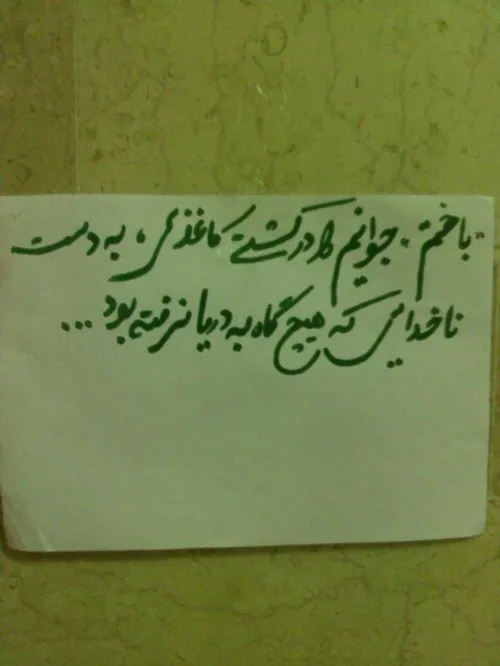 "باختم" جوانیم را در کشتی کاغذی، به دست
ناخدایی که هیچ گاه به دریا نرفته بود...